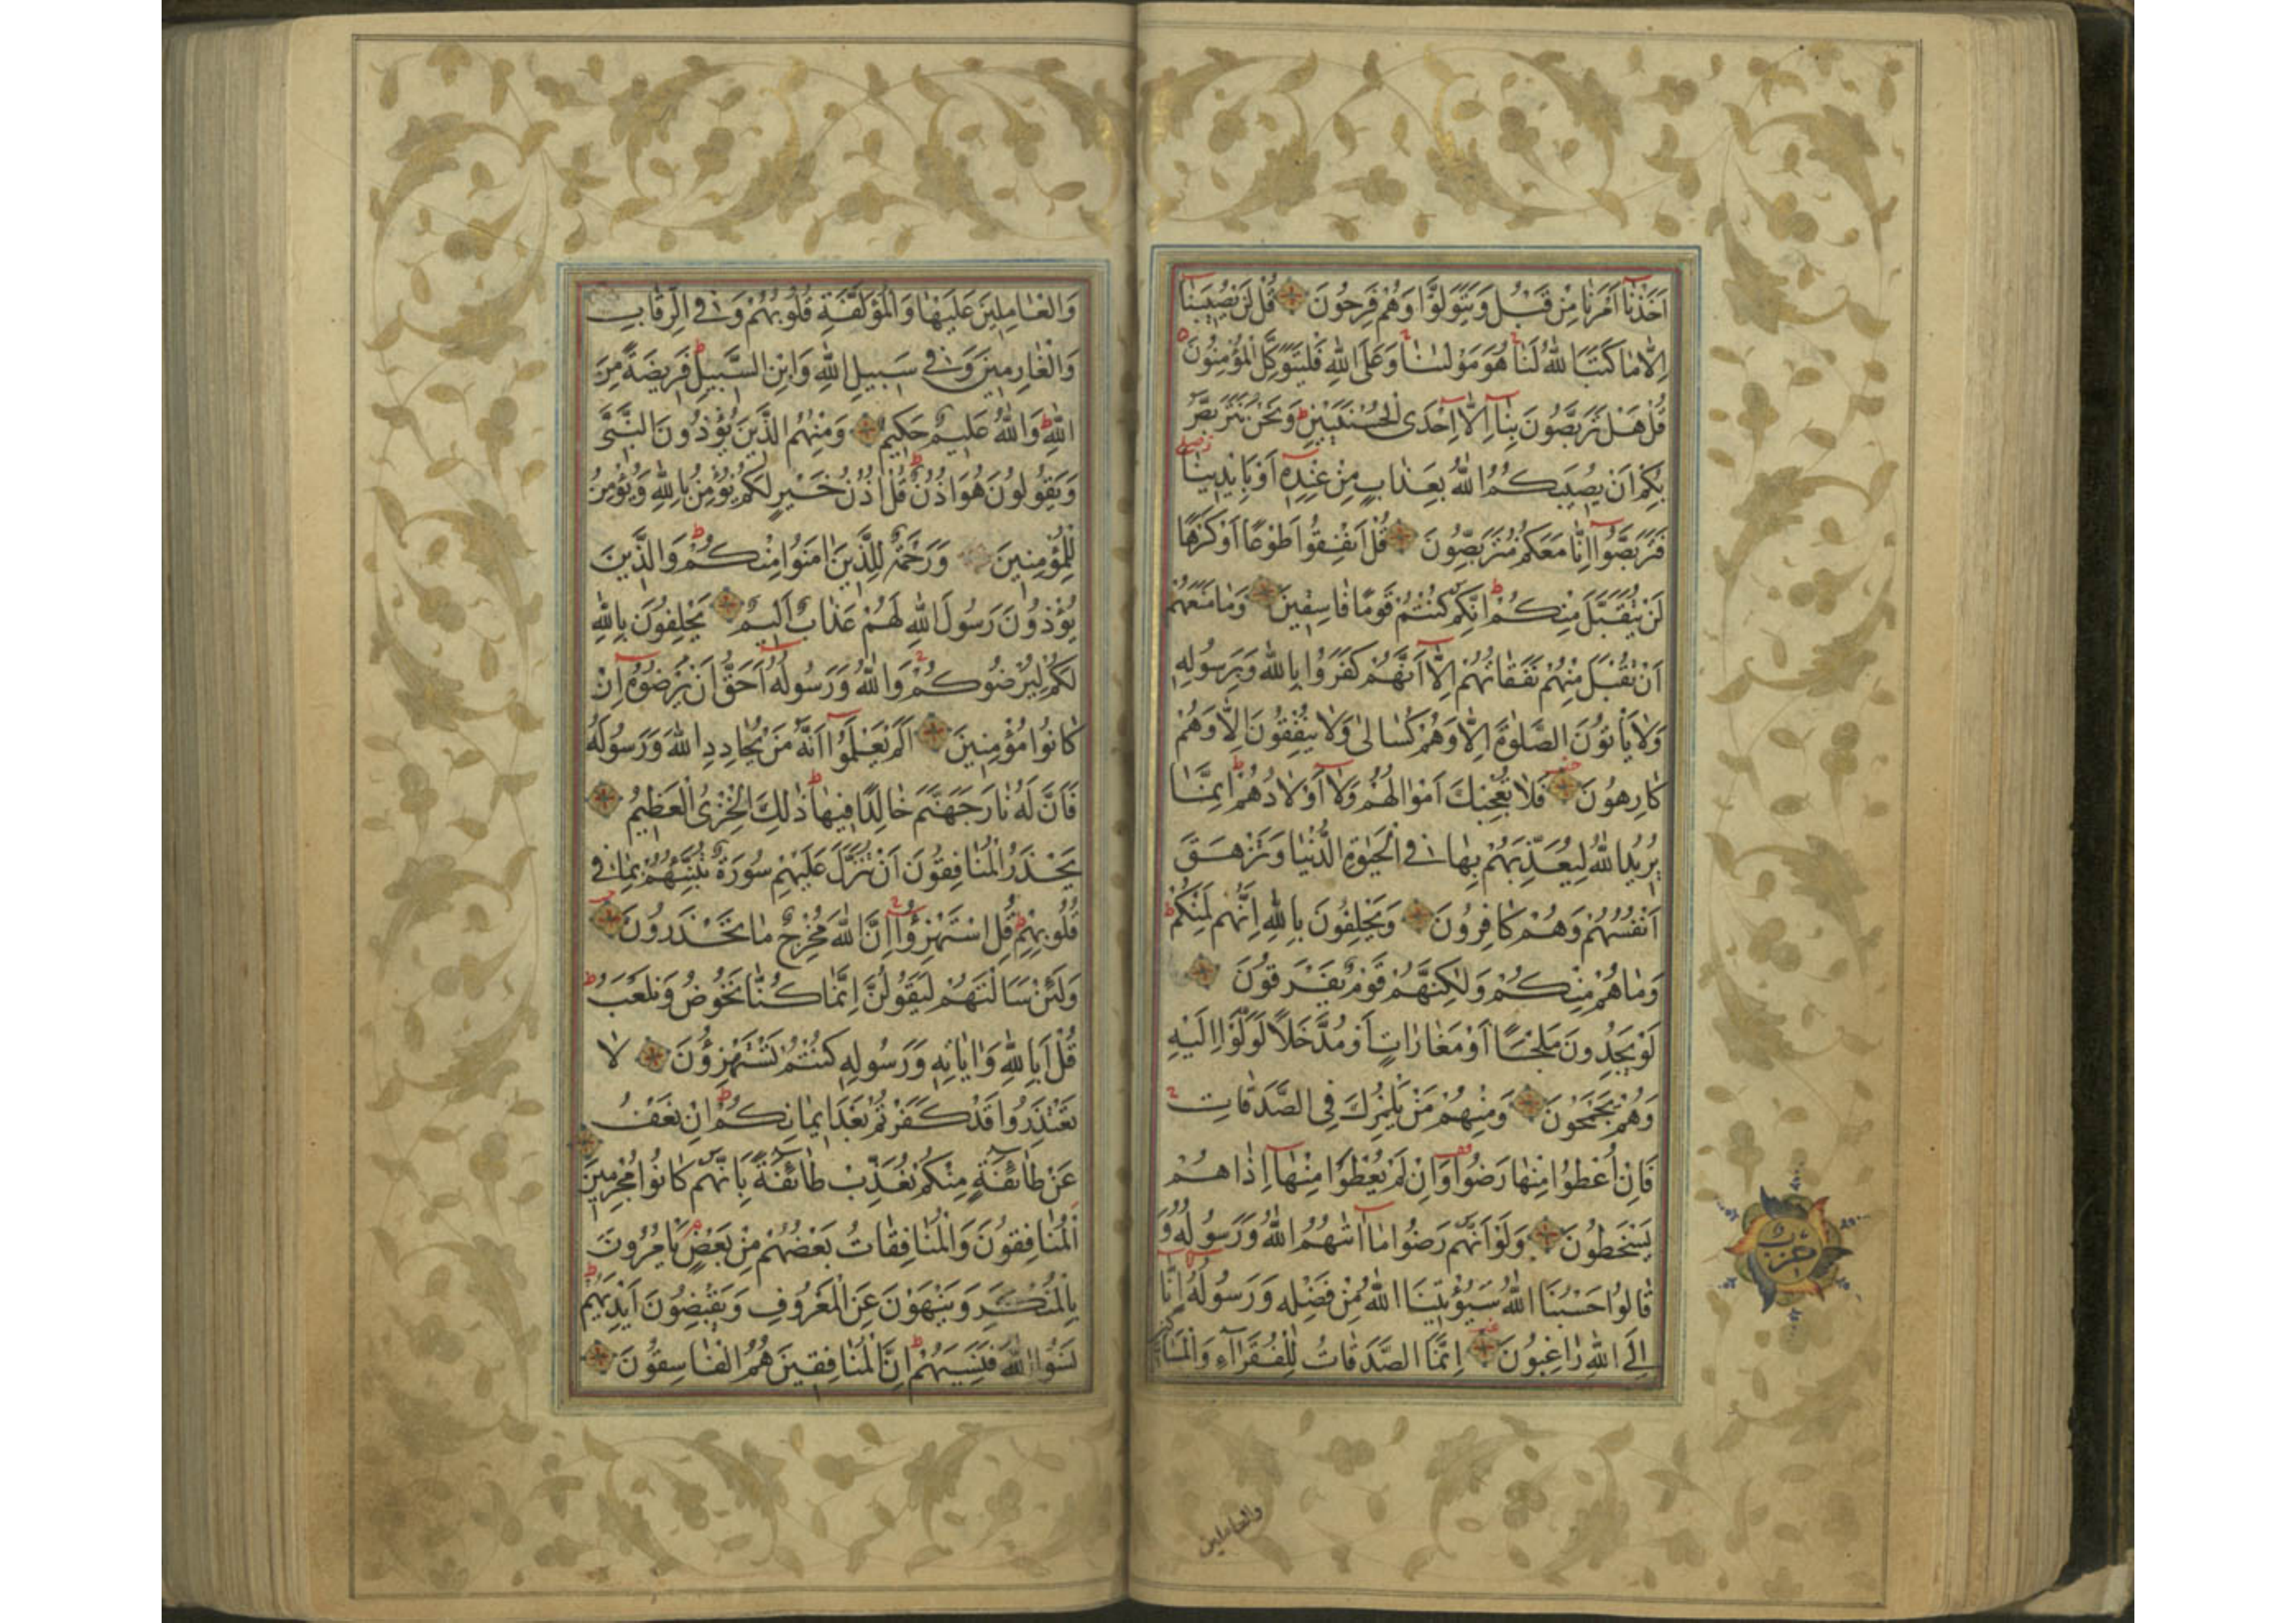 اَخَذْنٰا اَمْرَنٰا مِنْ قَبْلُ وَيَتَوَلَّوْا وَهُمْ فَرِحُونَ قُلْ لَنْ يُصِيبَنٰا
اِلّٰا مٰا كَتَبَ اللّٰهُ لَنٰا هُوَ مَوْلٰىنٰا وَعَلَى اللّٰهِ فَلْيَتَوَكَّلِ الْمُؤْمِنُونَ
قُلْ هَلْ تَرَبَّصُونَ بِنٰا اِلّٰا اِحْدَى الْحُسْنَيَيْنِ وَنَحْنُ نَتَرَبَّصُ
بِكُمْ اَنْ يُصِيبَكُمُ اللّٰهُ بِعَذٰابٍ مِنْ عِنْدِهِ اَوْ بِاَيْدِينٰا
فَتَرَبَّصُوا اِنّٰا مَعَكُمْ مُتَرَبِّصُونَ قُلْ اَنْفِقُوا طَوْعًا اَوْ كَرْهًا
لَنْ يُتَقَبَّلَ مِنْكُمْ اِنَّكُمْ كُنْتُمْ قَوْمًا فٰاسِقِينَ وَمٰا مَنَعَهُمْ
اَنْ تُقْبَلَ مِنْهُمْ نَفَقٰاتُهُمْ اِلّٰا اَنَّهُمْ كَفَرُوا بِاللّٰهِ وَبِرَسُولِهِ
وَلٰا يَاْتُونَ الصَّلٰوةَ اِلّٰا وَهُمْ كُسٰالىٰ وَلٰا يُنْفِقُونَ اِلّٰا وَهُمْ
كٰارِهُونَ فَلٰا تُعْجِبْكَ اَمْوٰالُهُمْ وَلٰا اَوْلٰادُهُمْ اِنَّمٰا
يُرِيدُ اللّٰهُ لِيُعَذِّبَهُمْ بِهٰا فِي الْحَيٰوةِ الدُّنْيٰا وَتَزْهَقَ
اَنْفُسُهُمْ وَهُمْ كٰافِرُونَ وَيَحْلِفُونَ بِاللّٰهِ اِنَّهُمْ لَمِنْكُمْ
وَمٰا هُمْ مِنْكُمْ وَلٰكِنَّهُمْ قَوْمٌ يَفْرَقُونَ
لَوْ يَجِدُونَ مَلْجَـًٔا اَوْ مَغٰارٰاتٍ اَوْ مُدَّخَلًا لَوَلَّوْا اِلَيْهِ
وَهُمْ يَجْمَحُونَ وَمِنْهُمْ مَنْ يَلْمِزُكَ فِي الصَّدَقٰاتِ
فَاِنْ اُعْطُوا مِنْهٰا رَضُوا وَاِنْ لَمْ يُعْطَوْا مِنْهٰا اِذٰا هُمْ
يَسْخَطُونَ وَلَوْ اَنَّهُمْ رَضُوا مٰا اٰتٰىهُمُ اللّٰهُ وَرَسُولُهُ وَ
قٰالُوا حَسْبُنَا اللّٰهُ سَيُؤْتِينَا اللّٰهُ مِنْ فَضْلِهِ وَرَسُولُهُ اِنّٰا
اِلَى اللّٰهِ رٰاغِبُونَ اِنَّمَا الصَّدَقٰاتُ لِلْفُقَرٰاءِ وَالْمَسٰاكِينِ
والعاملين
حزب
وَالْعٰامِلِينَ عَلَيْهٰا وَالْمُؤَلَّفَةِ قُلُوبُهُمْ وَفِي الرِّقٰابِ
وَالْغٰارِمِينَ وَفِي سَبِيلِ اللّٰهِ وَابْنِ السَّبِيلِ فَرِيضَةً مِنَ
اللّٰهِ وَاللّٰهُ عَلِيمٌ حَكِيمٌ وَمِنْهُمُ الَّذِينَ يُؤْذُونَ النَّبِيَّ
وَيَقُولُونَ هُوَ اُذُنٌ قُلْ اُذُنُ خَيْرٍ لَكُمْ يُؤْمِنُ بِاللّٰهِ وَيُؤْمِنُ
لِلْمُؤْمِنِينَ وَرَحْمَةٌ لِلَّذِينَ اٰمَنُوا مِنْكُمْ وَالَّذِينَ
يُؤْذُونَ رَسُولَ اللّٰهِ لَهُمْ عَذٰابٌ اَلِيمٌ يَحْلِفُونَ بِاللّٰهِ
لَكُمْ لِيُرْضُوكُمْ وَاللّٰهُ وَرَسُولُهُ اَحَقُّ اَنْ يُرْضُوهُ اِنْ
كٰانُوا مُؤْمِنِينَ اَلَمْ يَعْلَمُوا اَنَّهُ مَنْ يُحٰادِدِ اللّٰهَ وَرَسُولَهُ
فَاَنَّ لَهُ نٰارَ جَهَنَّمَ خٰالِدًا فِيهٰا ذٰلِكَ الْخِزْيُ الْعَظِيمُ
يَحْذَرُ الْمُنٰافِقُونَ اَنْ تُنَزَّلَ عَلَيْهِمْ سُورَةٌ تُنَبِّئُهُمْ بِمٰا فِي
قُلُوبِهِمْ قُلِ اسْتَهْزِؤُا اِنَّ اللّٰهَ مُخْرِجٌ مٰا تَحْذَرُونَ
وَلَئِنْ سَاَلْتَهُمْ لَيَقُولُنَّ اِنَّمٰا كُنّٰا نَخُوضُ وَنَلْعَبُ
قُلْ اَبِاللّٰهِ وَاٰيٰاتِهِ وَرَسُولِهِ كُنْتُمْ تَسْتَهْزِؤُنَ لٰا
تَعْتَذِرُوا قَدْ كَفَرْتُمْ بَعْدَ اِيمٰانِكُمْ اِنْ نَعْفُ
عَنْ طٰائِفَةٍ مِنْكُمْ نُعَذِّبْ طٰائِفَةً بِاَنَّهُمْ كٰانُوا مُجْرِمِينَ
اَلْمُنٰافِقُونَ وَالْمُنٰافِقٰاتُ بَعْضُهُمْ مِنْ بَعْضٍ يَاْمُرُونَ
بِالْمُنْكَرِ وَيَنْهَوْنَ عَنِ الْمَعْرُوفِ وَيَقْبِضُونَ اَيْدِيَهُمْ
نَسُوا اللّٰهَ فَنَسِيَهُمْ اِنَّ الْمُنٰافِقِينَ هُمُ الْفٰاسِقُونَ